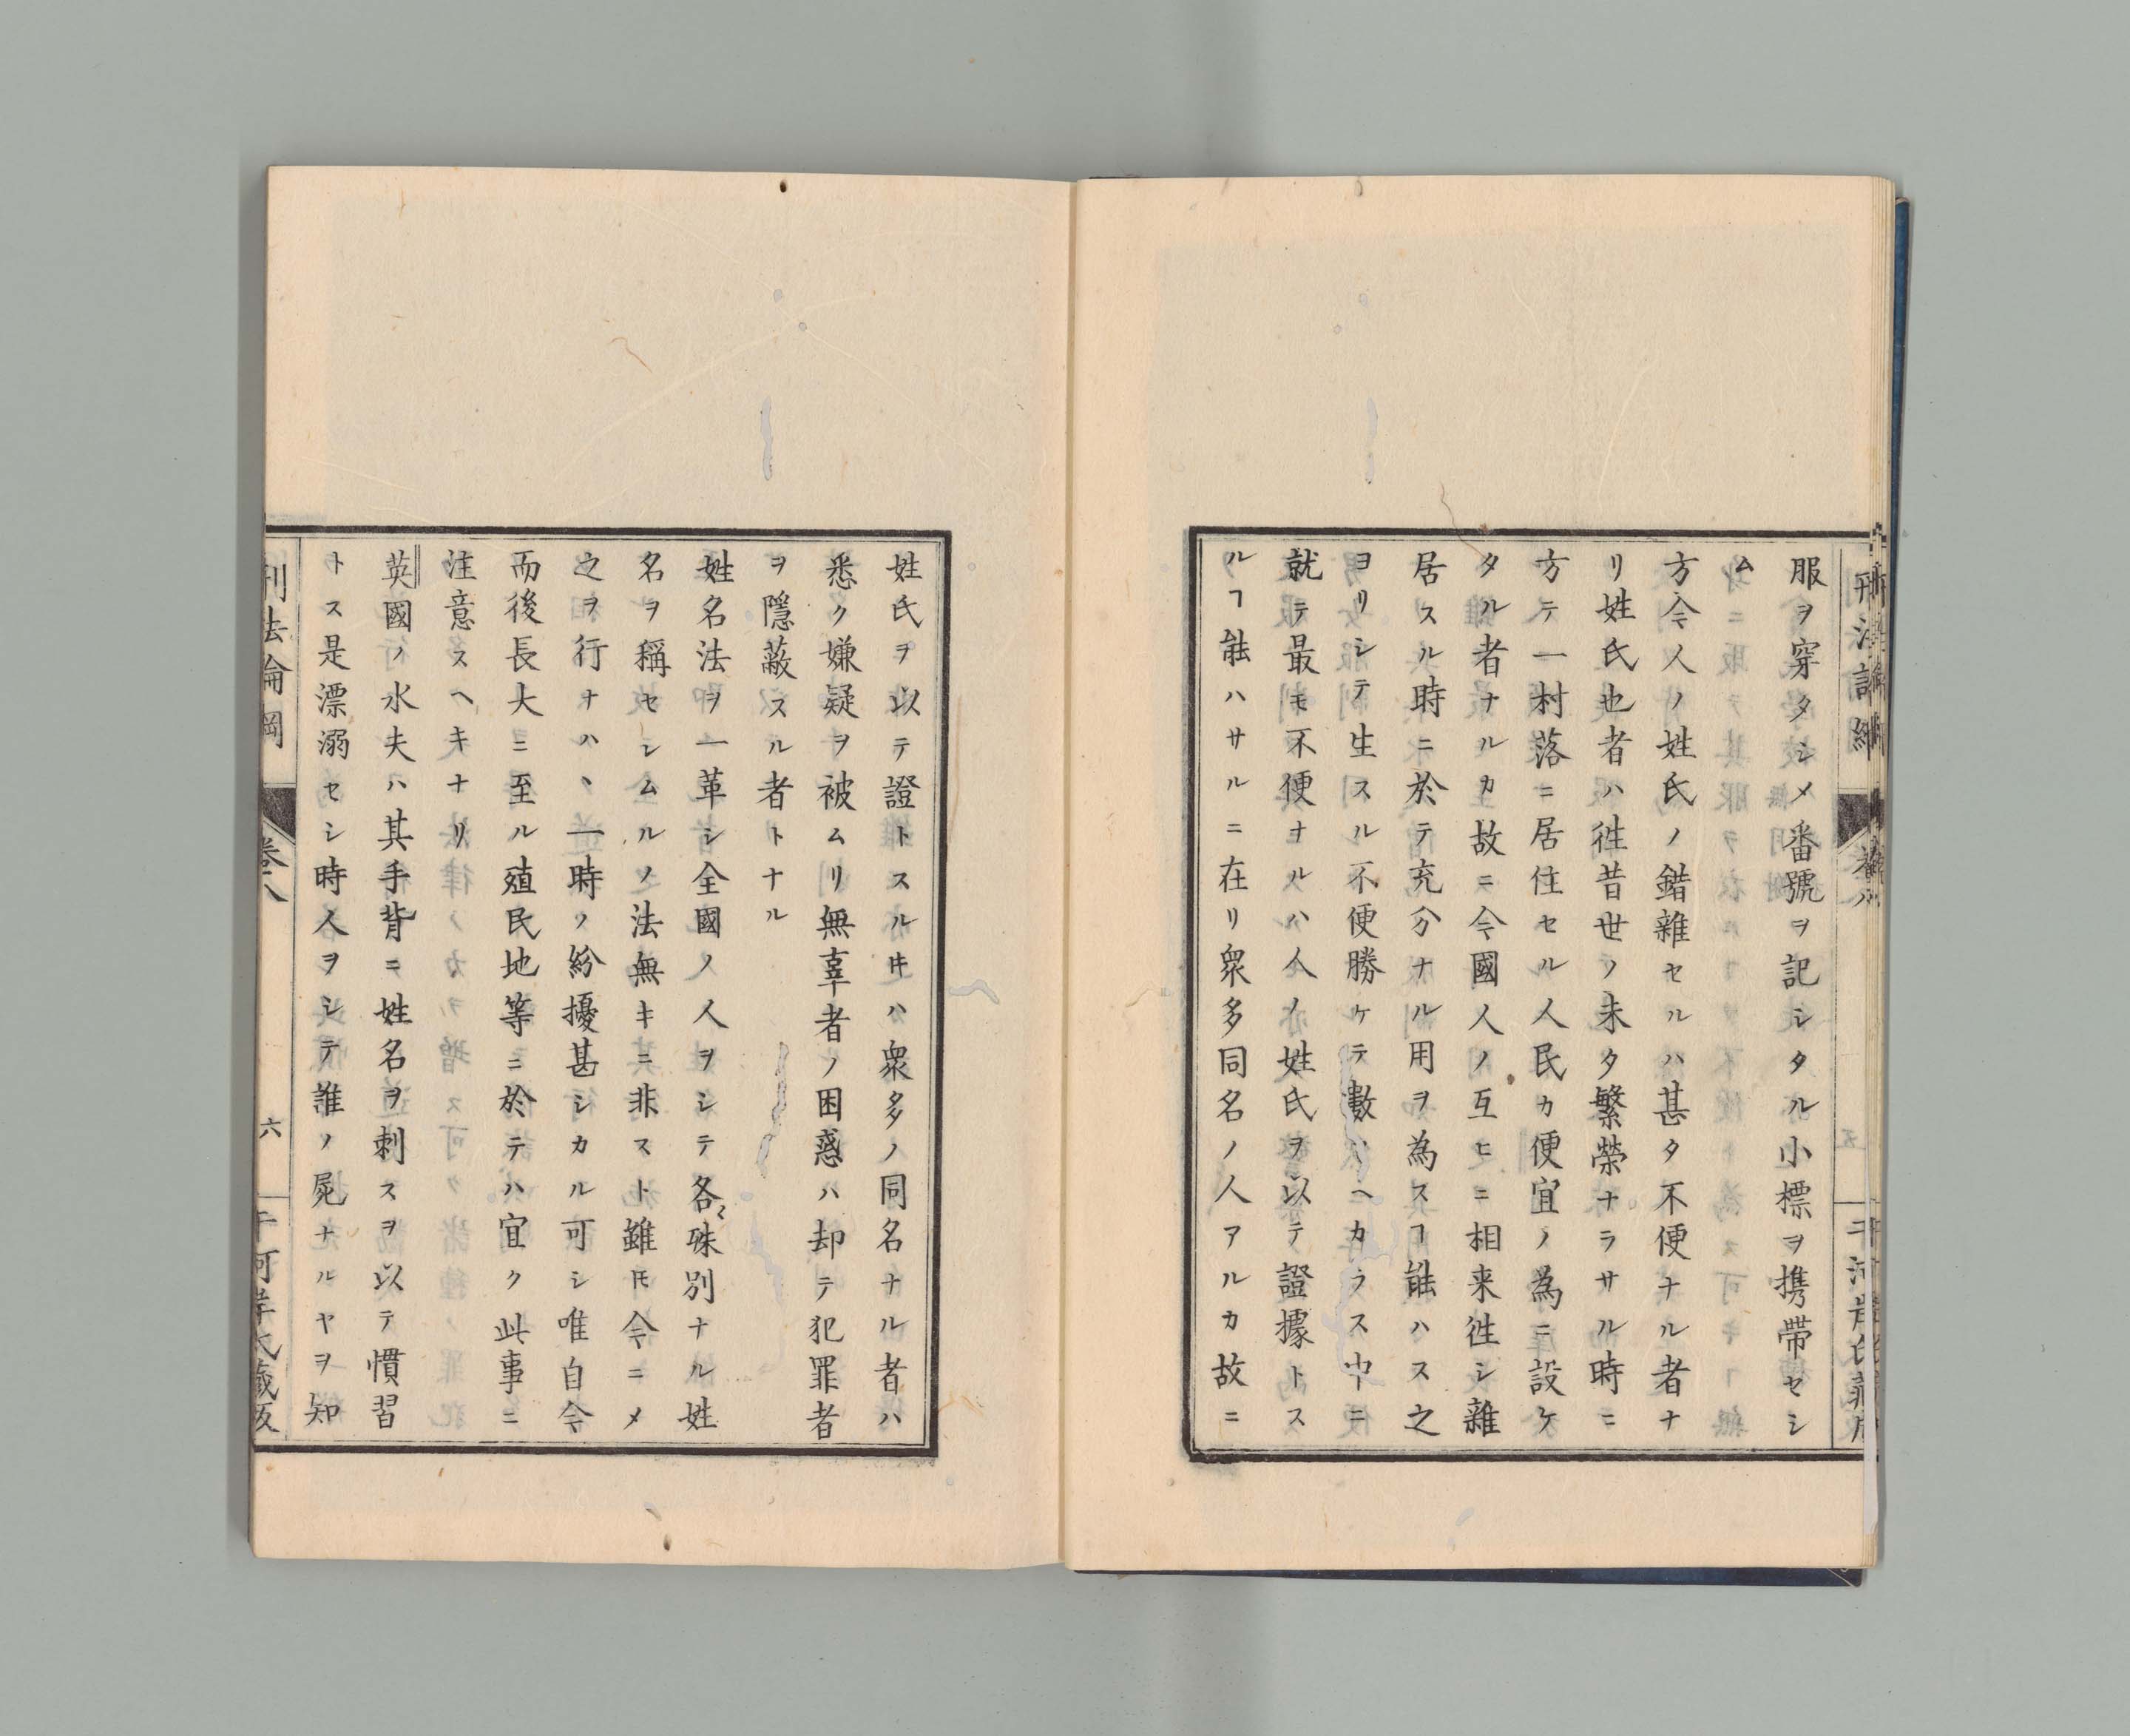 服ヲ穿タシメ番號ヲ記シタル小標ヲ携帶セシ
ム
方今人ノ姓氏ノ錯雜セルハ甚タ不便ナル者ナ
リ姓氏也者ハ徃昔世ノ未タ繁榮ナラサル時ニ
方テ一村落ニ居住セル人民カ便宜ノ為ニ設ケ
タル者ナルカ故ニ今國人ノ互ヒニ相来徃シ雜
居スル時ニ於テ充分ナル用ヲ為スヿ能ハス之
ヨリシテ生スル不便勝ケテ數ハヘカラス中ニ
就テ最モ不便ナルハ人ノ姓氏ヲ以テ證據トス
ルヿ能ハサルニ在リ衆多同名ノ人アルカ故ニ
姓氏ヲ以テ證トスル𪜈ハ衆多ノ同名ナル者ハ
悉ク嫌疑ヲ被ムリ無辜者ノ困惑ハ却テ犯罪者
ヲ隱蔽スル者トナル
姓名法ヲ一革シ全國ノ人ヲシテ各〻殊別ナル姓
名ヲ稱セシムルノ法無キニ非スト雖𪜈今ニメ
之ヲ行ナハヽ一時ノ紛擾甚シカル可シ唯自今
而後長大ニ至ル殖民地等ニ於テハ宜ク此事ニ
注意スヘキナリ
英國ノ水夫ハ其手背ニ姓名ヲ刺スヲ以テ慣習
トス是漂溺セシ時人ヲシテ誰ノ屍ナルヤヲ知
刑法論綱
卷八
六